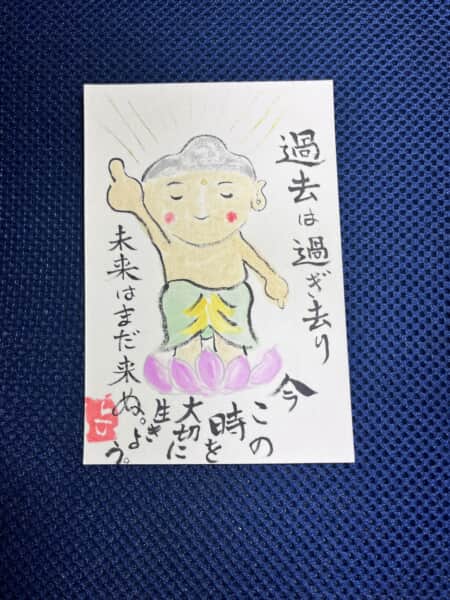 過去は過ぎ去り
未来はまだ来ぬ。
今
この
時を
大切に
生き
よう。